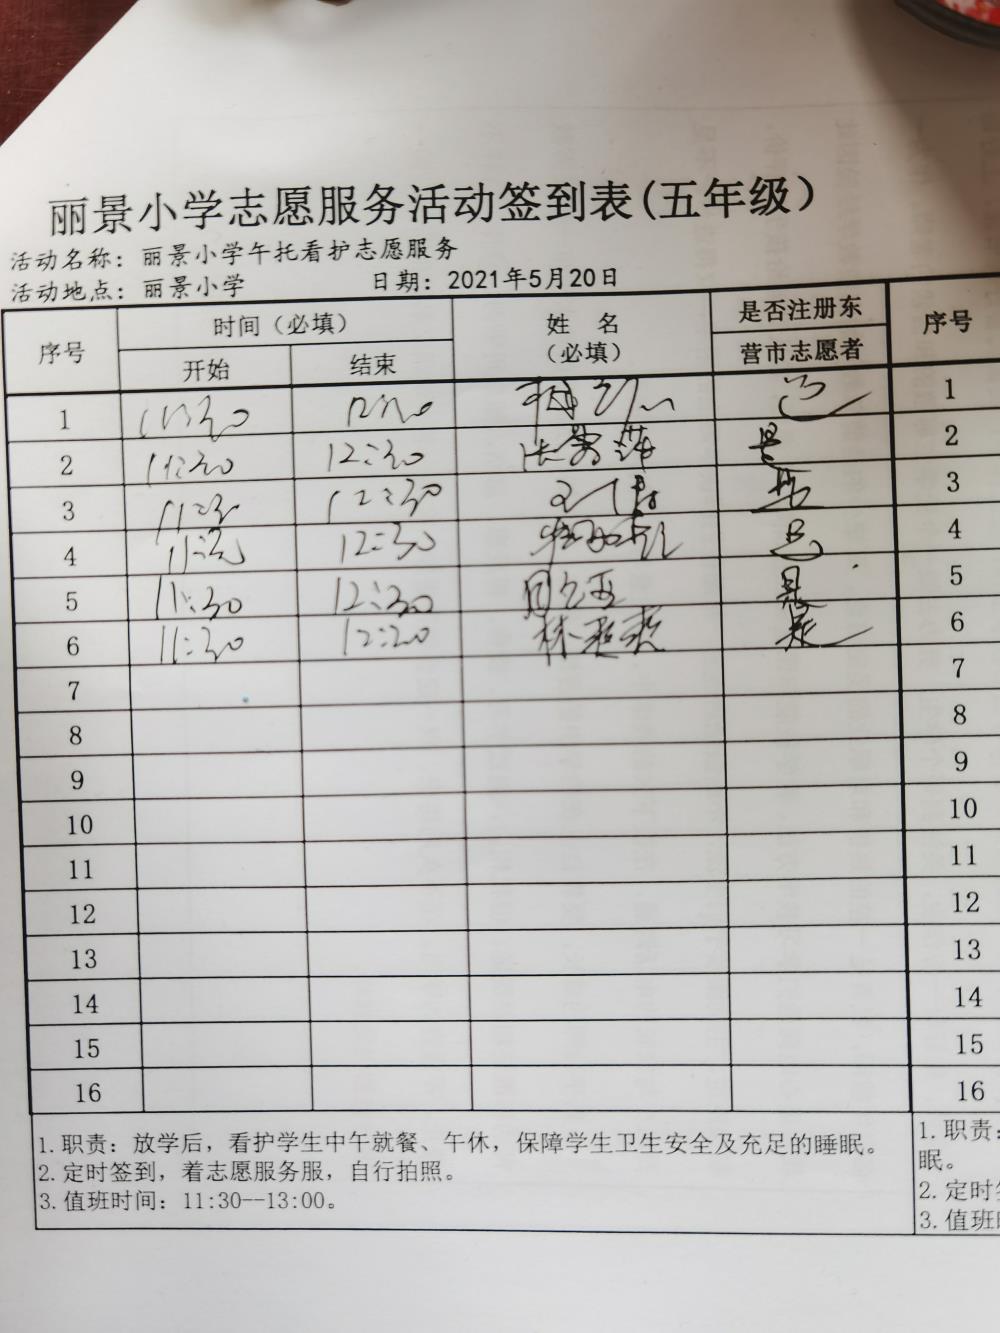 丽景小学志愿服务活动签到表(五年级）
活动名称：丽景小学午托看护志愿服务
活动地点：丽景小学 日期：2021年5月20日
序号 时间（必填） 姓 名 （必填） 是否注册东 营市志愿者 序号
开始 结束
1 11:30 是 1
2 11:30 12:30 是 2
3 11:30 12:30 是 3
4 11:30 12:30 是 4
5 11:30 12:30 是 5
6 11:30 12:30 是 6
7 7
8 8
9 9
10 10
11 11
12 12
13 13
14 14
15 15
16 16
1.职责：放学后，看护学生中午就餐、午休，保障学生卫生安全及充足的睡眠。
2.定时签到，着志愿服务服，自行拍照。
3.值班时间：11:30--13:00。
1.职责：
眠。
2.定时
3.值班